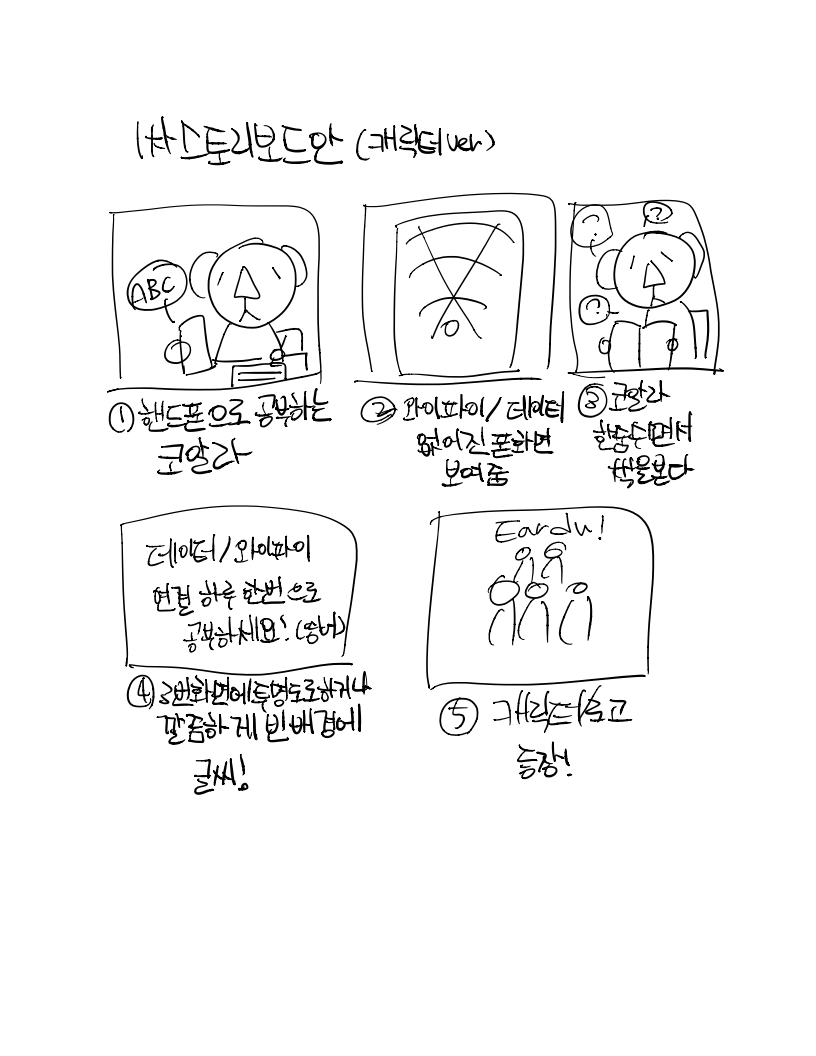 1차 스토리보드안 (캐릭터 ver)
ABC
? ?
?
① 핸드폰으로 공부하는
코알라
② 와이파이/데이터
없어진 폰화면
보여줌
③ 코알라
한숨쉬면서
책을본다
데이터/와이파이
연결 하루 한번으로
공부하세요!
④ 3번화면에 투명도로하거나
깔끔하게 빈배경에
글씨!
Eardu!
⑤ 캐릭터/로고
등장!